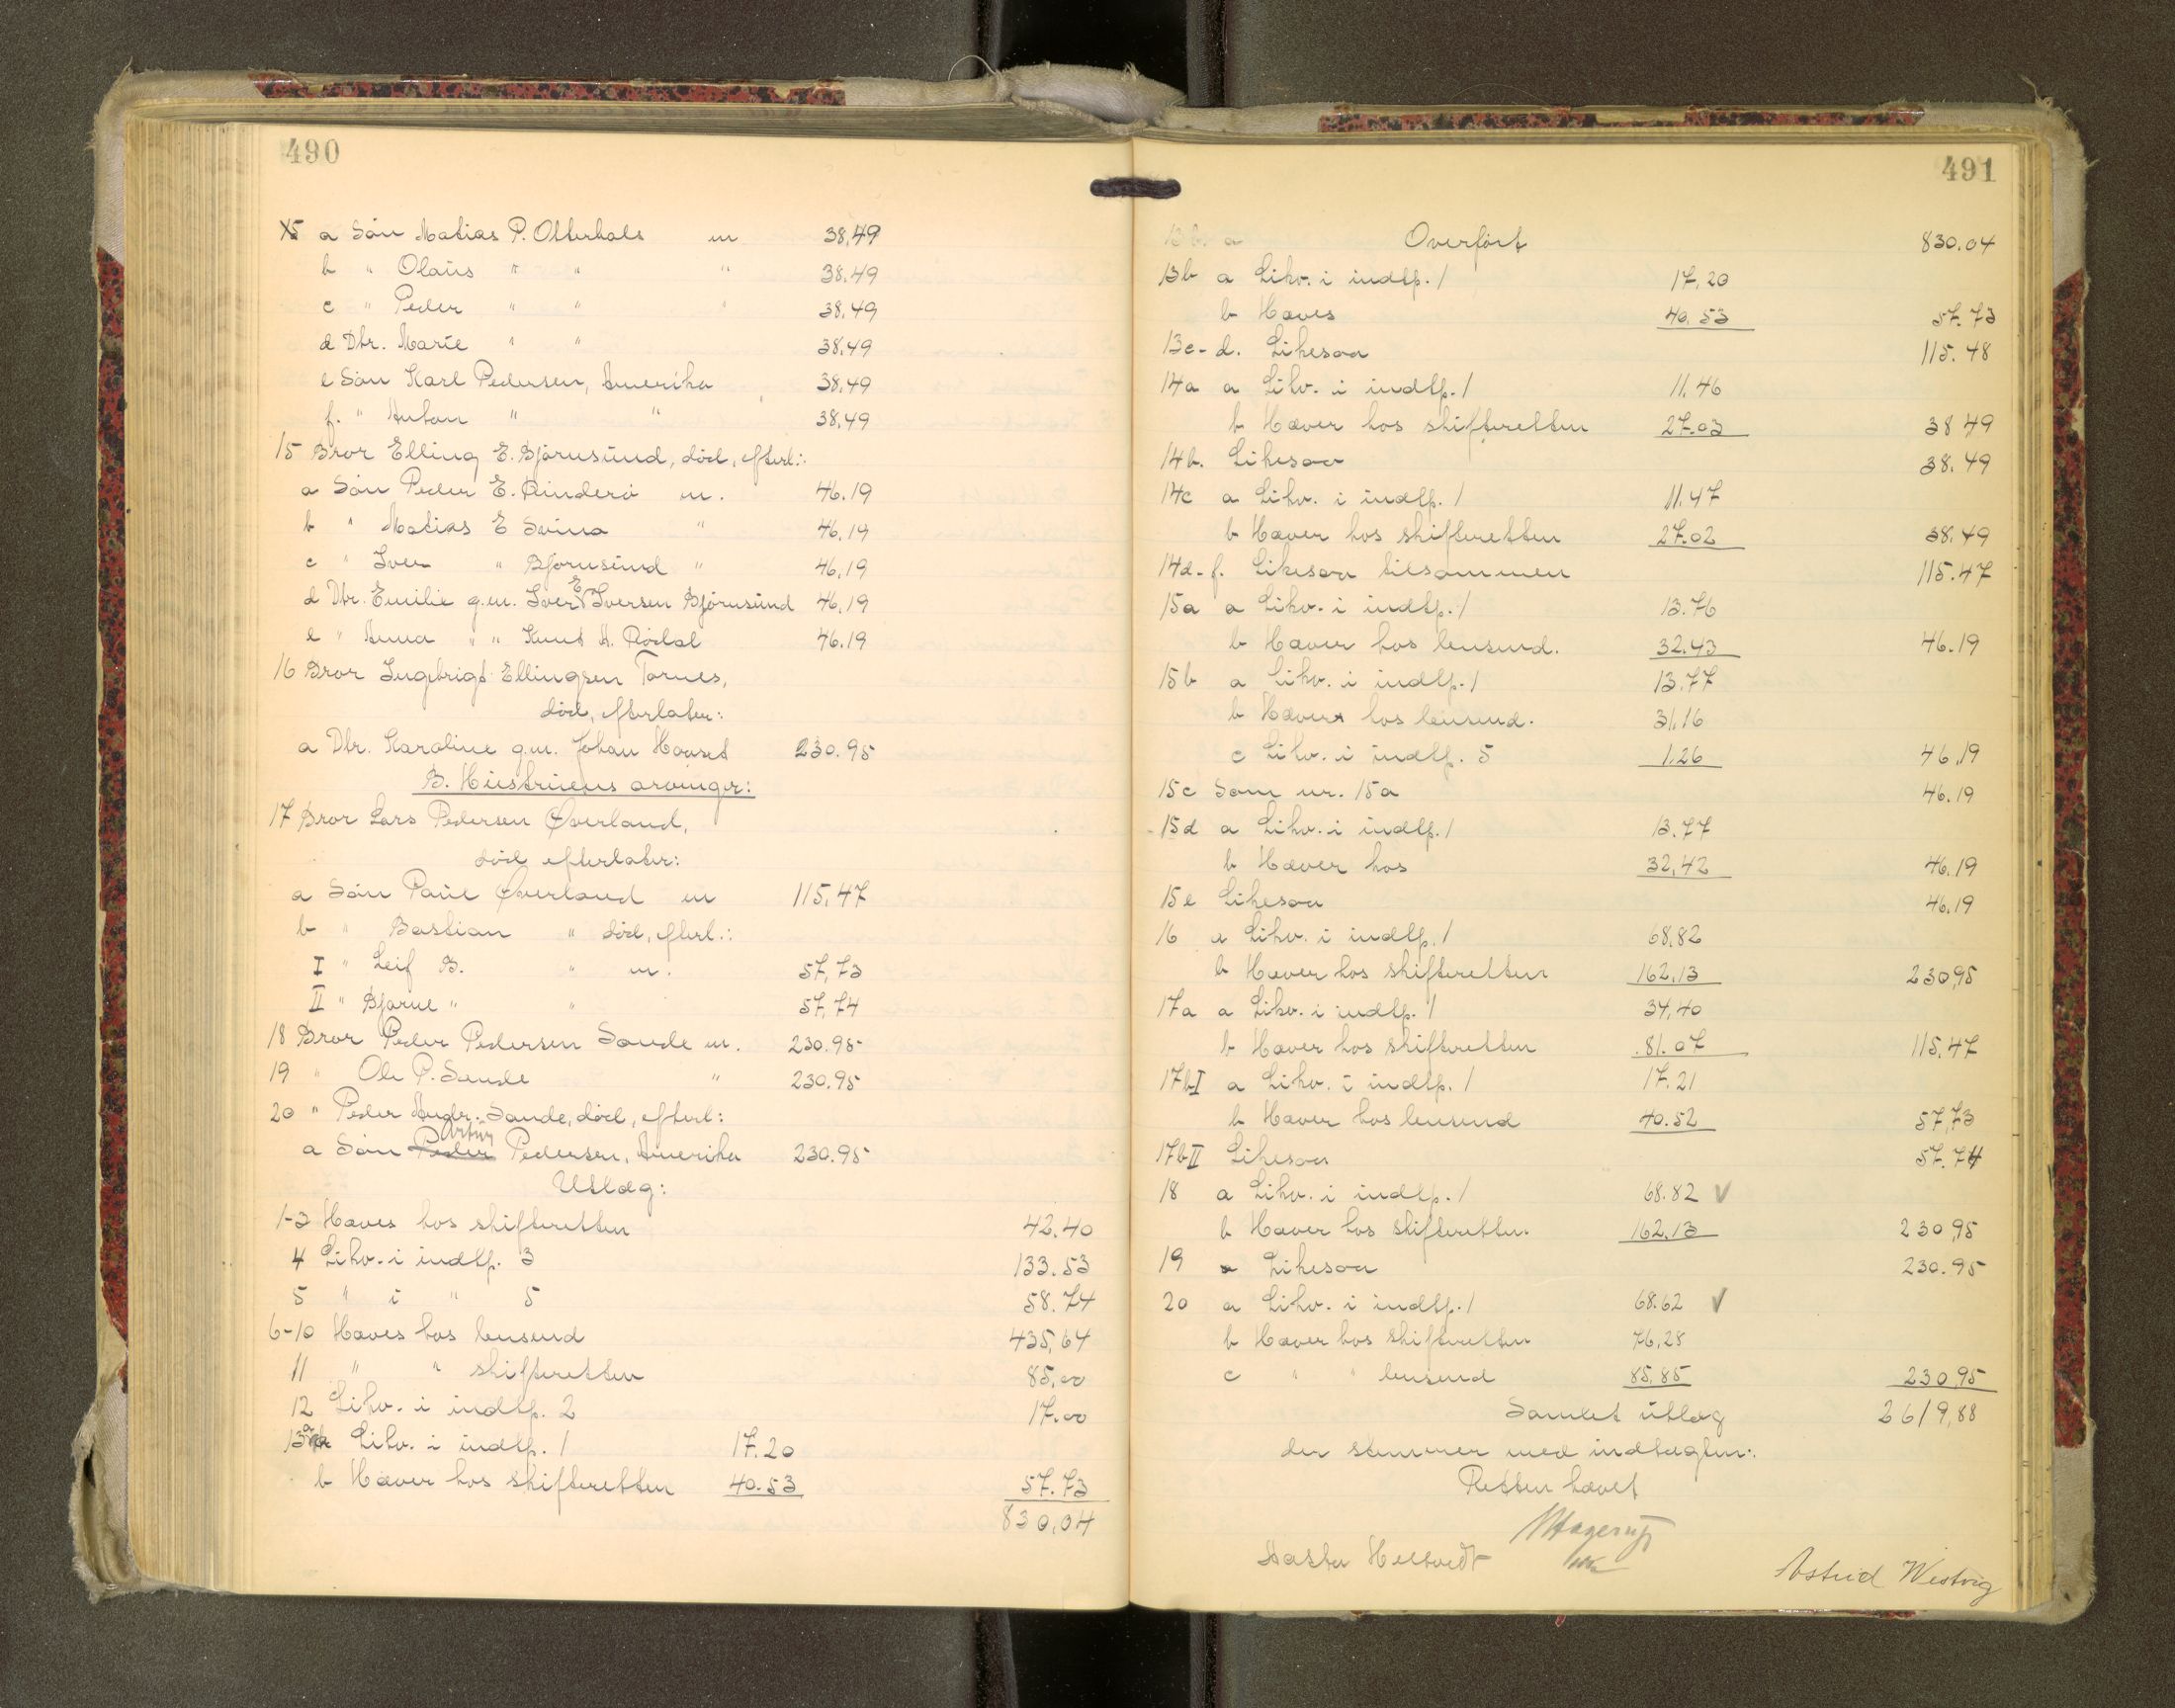 490
a Søn Matias P. Otterhals m 38,49
b " Olaus " " " 38.49
c " Peder " " " 38.49
d Dtr. Marie " " 38.49
e Søn Karl Pedersen, Amerika 38,49
f. " Anton " " 38,49
15 Bror Elling E. Bjørnsund, død, efterl.:
a Søn Peder E. Rinderø m. 46.19
b " Matias E Svina " 46.19
c " Iver " Bjørnsund " 46.19
d Dtr. Emilie g.m. Iver E Iversen Bjørnsund 46.19
e " Anna " " Knut A. Rødal 46.19
16 Bror Ingebrigt Ellingsen Tornes,
død, efterlater:
a Dtr. Karoline g.m. Johan Hovset 230.95
B. Hustruens arvinger:
17 Bror Lars Pedersen Øverland,
død efterlater:
a Søn Paul Øverland m 115,47
b " Bastian " død, efterl.:
I " Leif B. " m. 57,73
II " Bjarne " " 57,74
18 Bror Peder Pedersen Sande m. 230.95
19 " Ole P. Sande " 230.95
20 " Peder Andr. Sande, død, efterl:
a Søn Peder Artur Pedersen, Amerika 230.95
Utlæg:
1-3 Haves hos skifteretten 42.40
4 Likv. i indtp. 3 133.53
5 " i " 5 58.74
6-10 Haves hos lensmd 435,64
11 " " skifteretten 85,00
12 Likv. i indtp. 2 17.00
13a a Likv. i indtp. 1 17.20
b Hæver hos skifteretten 40.53 57.73
830,04
491
Overført 830.04
13b a Likv. i indtp. 1 17,20
b Haves 40.53 57.73
13c-d. Likesaa 115.48
14a a Likv. i indtp. 1 11.46
b Hæver hos skifteretten 27.03 38 49
14b. Likesaa 38.49
14c a Likv. i indtp. 1 11.47
b Hæver hos skifteretten 27.02 38.49
14d-f. Likesaa tilsammen 115.47
15a a Likv. i indtp. 1 13.76
b Hæver hos lensmd. 32.43 46.19
15b a Likv. i indtp. 1 13.77
b Hæver hos lensmd. 31.16
c Likv. i indtp. 5 1.26 46,19
15c Som nr. 15a 46.19
15d a Likv. i indtp. 1 13.77
b Hæver hos 32,42 46.19
15e Likesaa 46.19
16 a Likv. i indtp. 1 68,82
b Hæver hos skifteretten 162,13 230,95
17a a Likv. i indtp. 1 34,40
b Hæver hos skifteretten 81.07 115,47
17bI a Likv. i indtp. 1 17.21
b Hæver hos lensmd 40.52 57,73
17bII Likesaa 57.74
18 a Likv. i indtp. 1 68.82 ✓
b Hæver hos skifteretten 162.13 230,95
19 Likesaa 230.95
20 a Likv. i indtp. 1 68.62 ✓
b Hæver hos skifteretten 76,28
c " " lensmd 85,85 230,95
Samlet utlæg 2619,88
der stemmer med indtægten.
Retten hævet
Hagerup
Astrid Westvig